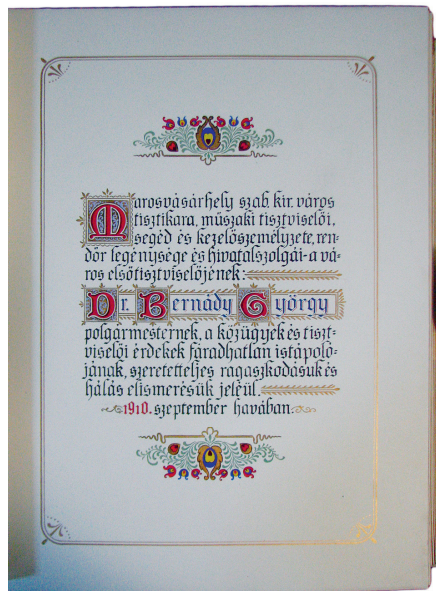 Marosvásárhely szab. kir. város
tisztikara, műszaki tisztviselői,
segéd és kezelőszemélyzete, ren-
dőr legénysége és hivatalszolgái - a vá-
ros elsőtisztviselőjének:
Dr. Bernády György
polgármesternek, a közügyek és tiszt-
viselői érdekek fáradhatlan istápoló-
jának, szeretetteljes ragaszkodásuk és
hálás elismerésük jeléül.
1910. szeptember havában.